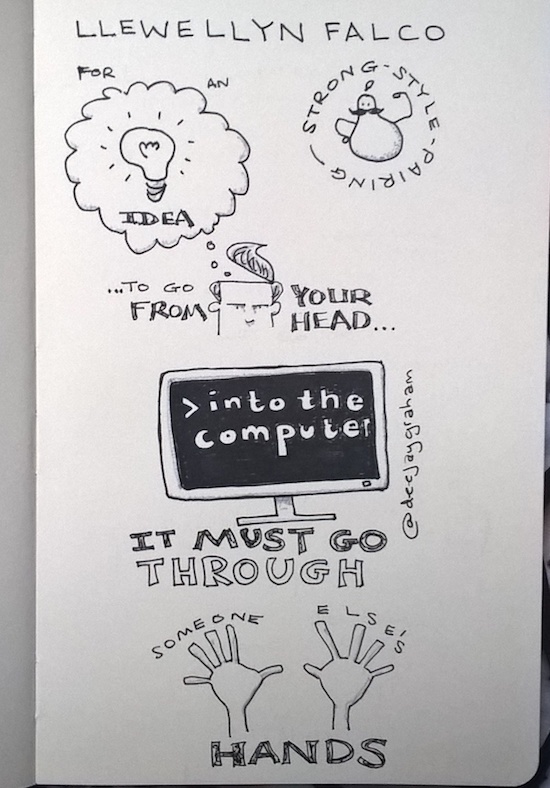 LLEWELLYN FALCO
FOR AN
IDEA
STRONG-STYLE-PAIRING
...TO GO
FROM YOUR
HEAD...
> into the
computer
@deejaygraham
IT MUST GO
THROUGH
SOMEONE ELSE'S
HANDS